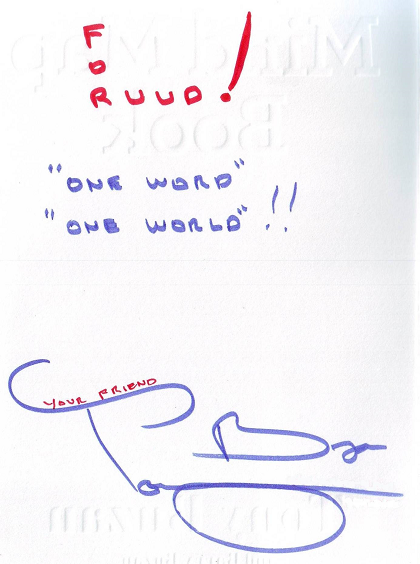 F
O
RUUD!
Mind Map
Book
"ONE WORD"
"ONE WORLD" !!
YOUR FRIEND
Tony Buzan
Tony Buzan